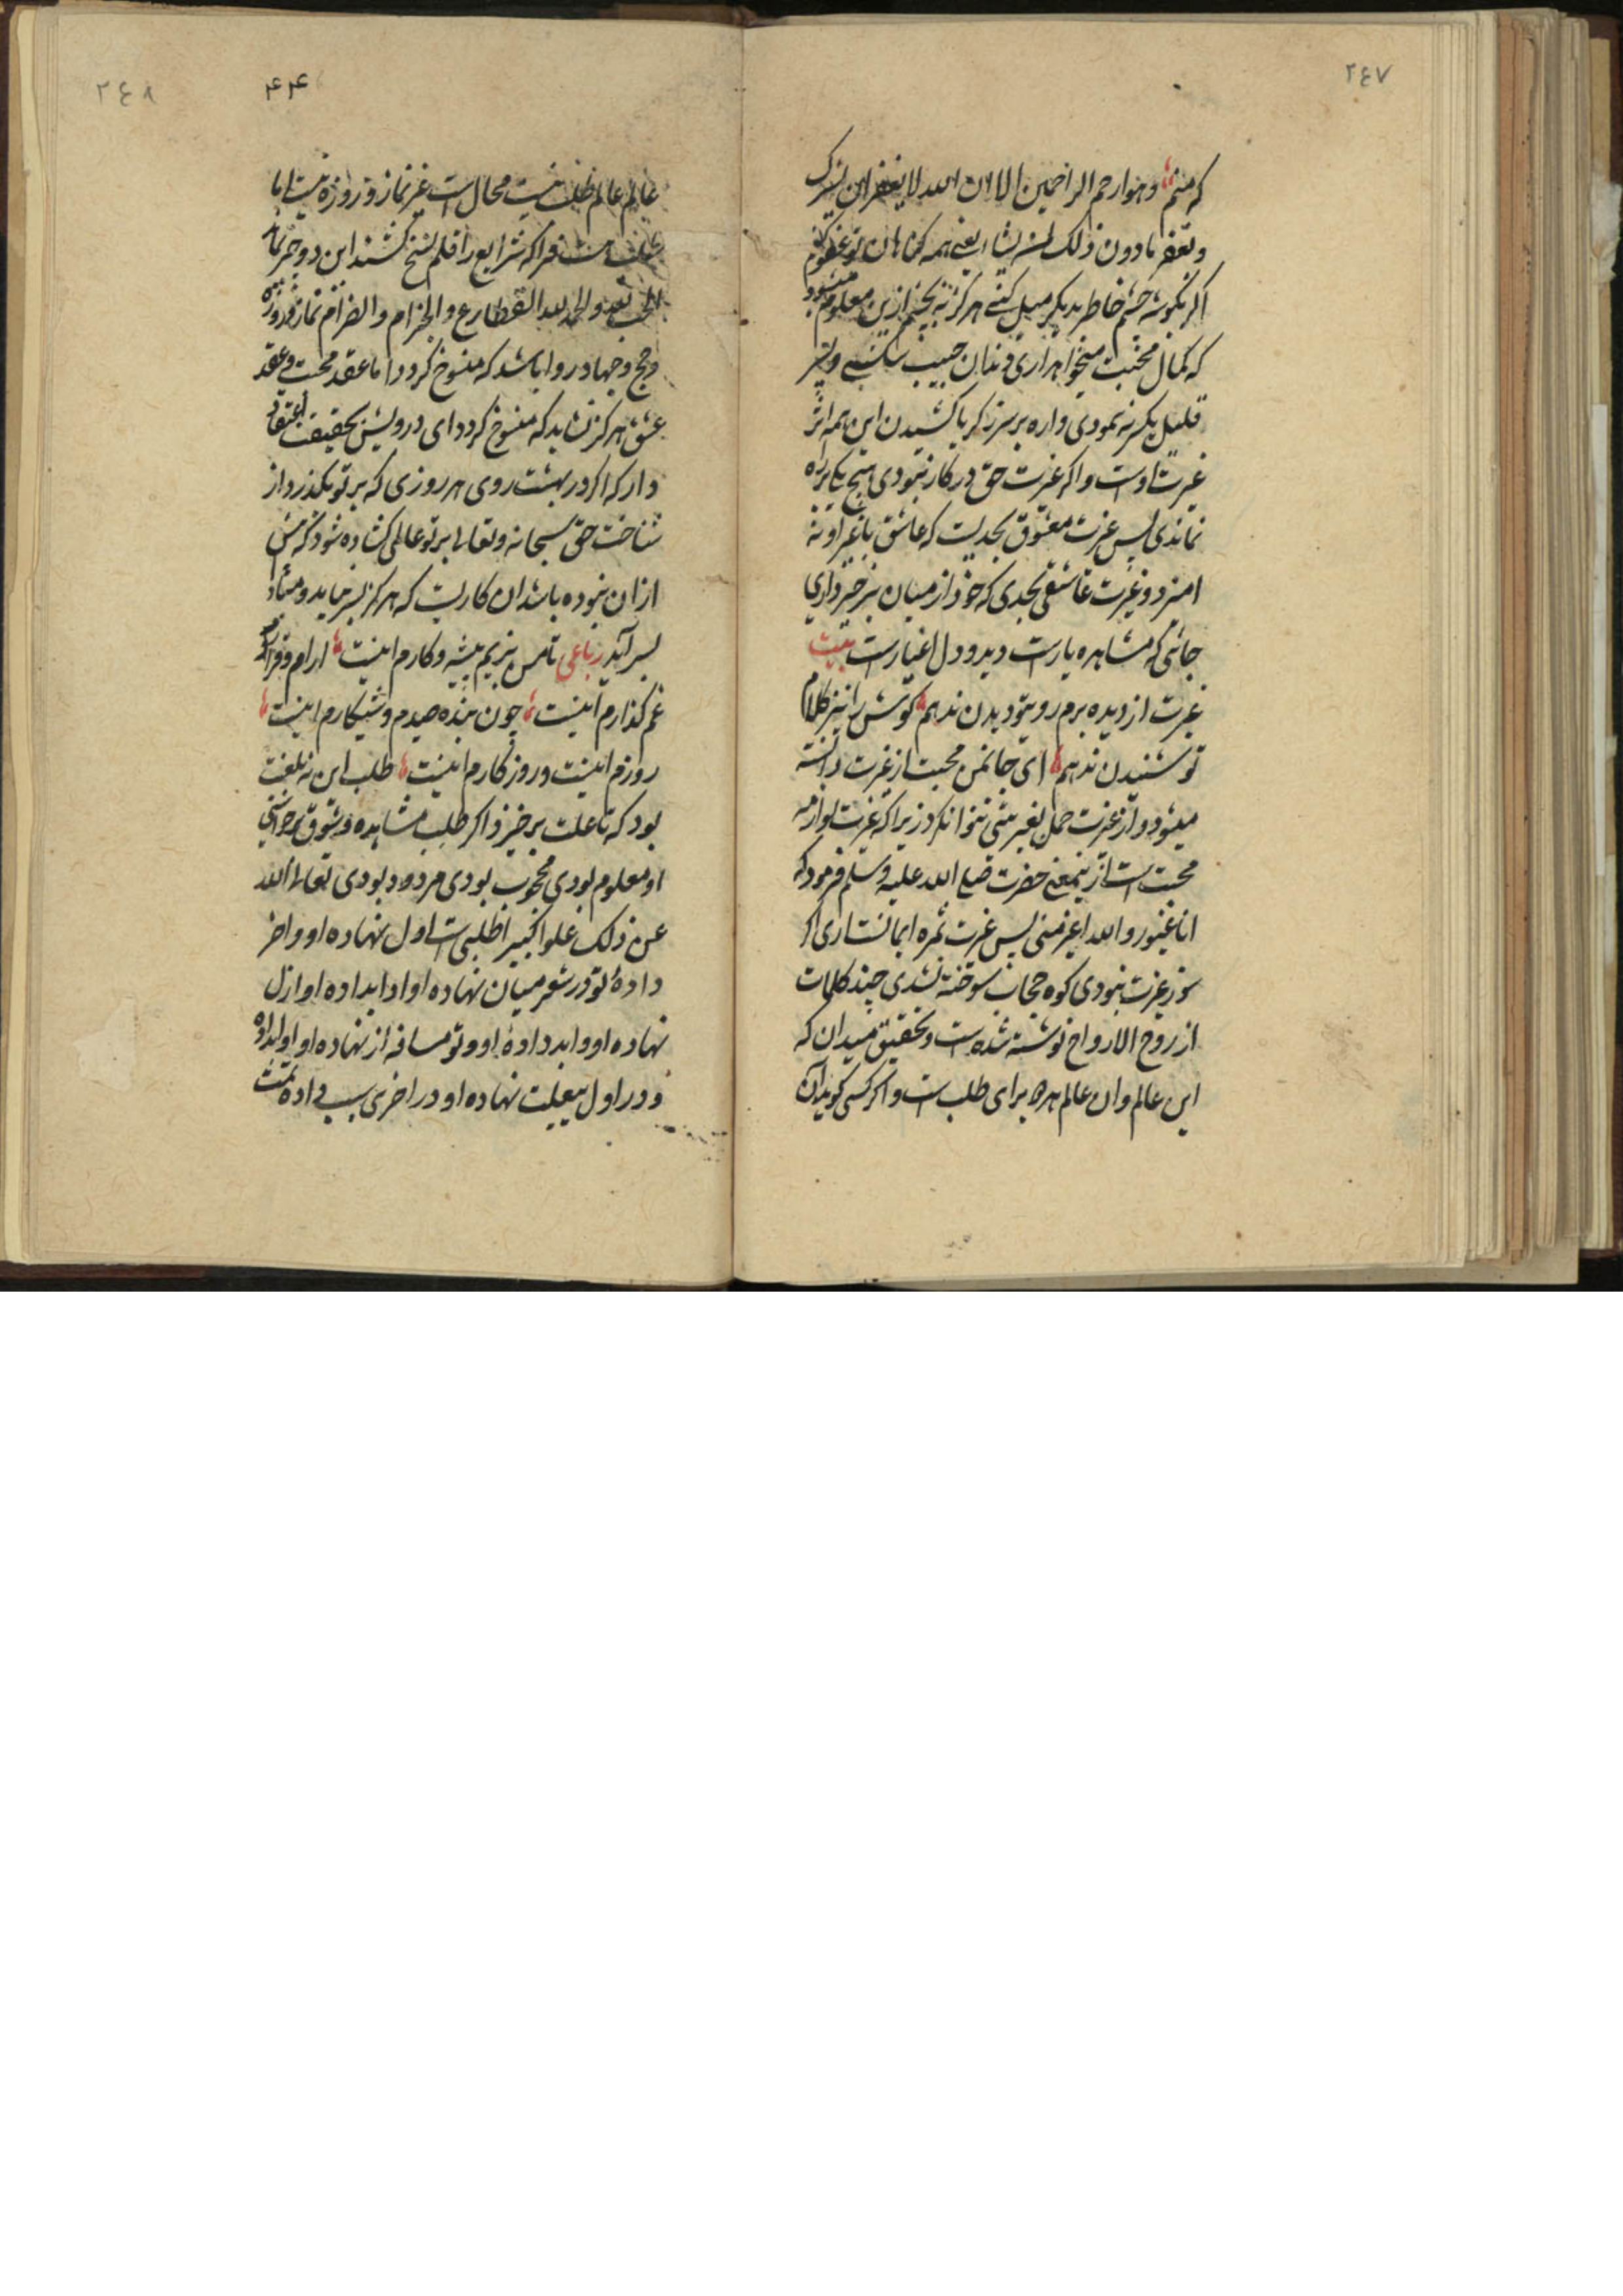 ٢٤٧
که منم وهو ارحم الراحمین الا ان الله لا یغفر ان یشرک
و یغفر مادون ذلک لمن یشاء یعنی همه کناهان تو عفو کنم
اکر بکوشه چشم خاطر بدیکر میل کنی هرکز نه بخشم ازین معلوم میشود
که کمال محبت میخواهد اری دندان حبیب شکستی و بتیر
قلیل یکسر نمودی و اره بر سر زکریا کشیدن این همه اثر
غیرت اوست و اکر غیرت حق در کار نبودی هیچ یکی را ه
نماندی پس غیرت معشوق بحدیست که عاشق با غیر او نه
امیزد و غیرت عاشقی بحدی که خود از میان برخیزد ای
جائی که مشاهده یارست دید و دل اغیارست بیت
غیرت از دیده برم روی تو دیدن ندهم کوش را نیز کلام
تو شنیدن ندهم ای جانمن محبت از غیرت دانسته
میشود و از غیرت حمل بغیر بینی نتوان کرد زیرا که غیرت لوازمه
محبت است ازینمعنی حضرت صلی الله علیه وسلم فرمود که
انا غیور و الله اغیر منی پس غیرت ثمره ایمانست اری اکر
سوز غیرت نبودی کوه حجاب سوخته نشدی چند کلمات
از روح الارواح نوشته شده است و بحقیق میدان که
این عالم و ان عالم همه برای طلب است و اکر کسی کوید ان
٢٤٨
۴۴
عالم عالم طلب نیست محال است غیر نماز و روزه نیست اما
طلب هست فردا که شرایع را قلم نسخ کشند این دو چیز بماند
الحب لله و الحمد لله نماز و روزه
و حج و جهاد روا باشد که منسوخ کردد اما عقد محبت و عقد
عشق هرکز نشاید که منسوخ کردد ای درویش بحقیقت اعتقاد
دار که اکر در بهشت روی هر روزی که بر تو بکذرد از
شناخت حق سبحانه و تعالی بر تو عالمی کشاده شود که پیش
ازان نبوده باشد ان کاریست که هرکز بسر نیاید و مباد
بسر آید رباعی تا من بزیم پیشه و کارم اینست ارام و قرار و
غم کذارم اینست چون بنده صیدم و شکارم اینست
روزم اینست و روزکارم اینست طلب این نه بلغت
بود که تا علت برخیزد اکر طلب مشاهده و شوق برخواستی
او معلوم بودی محجوب بودی مردود بودی تعالی الله
عن ذلک علوا کبیرا طلبی است اول نهاده او و اخر
داده تو در شعر میان نهاده او و ابد داده او ازل
نهاده او و ابد داده او و تو مسافه از نهاده او و ابد داده
و در اول بیعلت نهاده او در اخر بی سبب داده تمت